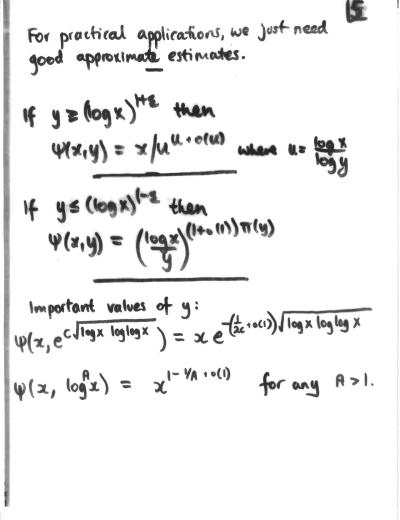 15
For practical applications, we just need
good approximate estimates.
If y ≥ (log x)^{1+ε} then
Ψ(x,y) = x/u^{u+o(u)} where u = log x / log y
If y ≤ (log x)^{1-ε} then
Ψ(x,y) = (log x / y)^{(1+o(1))π(y)}
Important values of y:
Ψ(x, e^{c√(log x loglog x)}) = x e^{-(1/2c + o(1))√(log x log log x)}
Ψ(x, log^A x) = x^{1-1/A+o(1)} for any A>1.